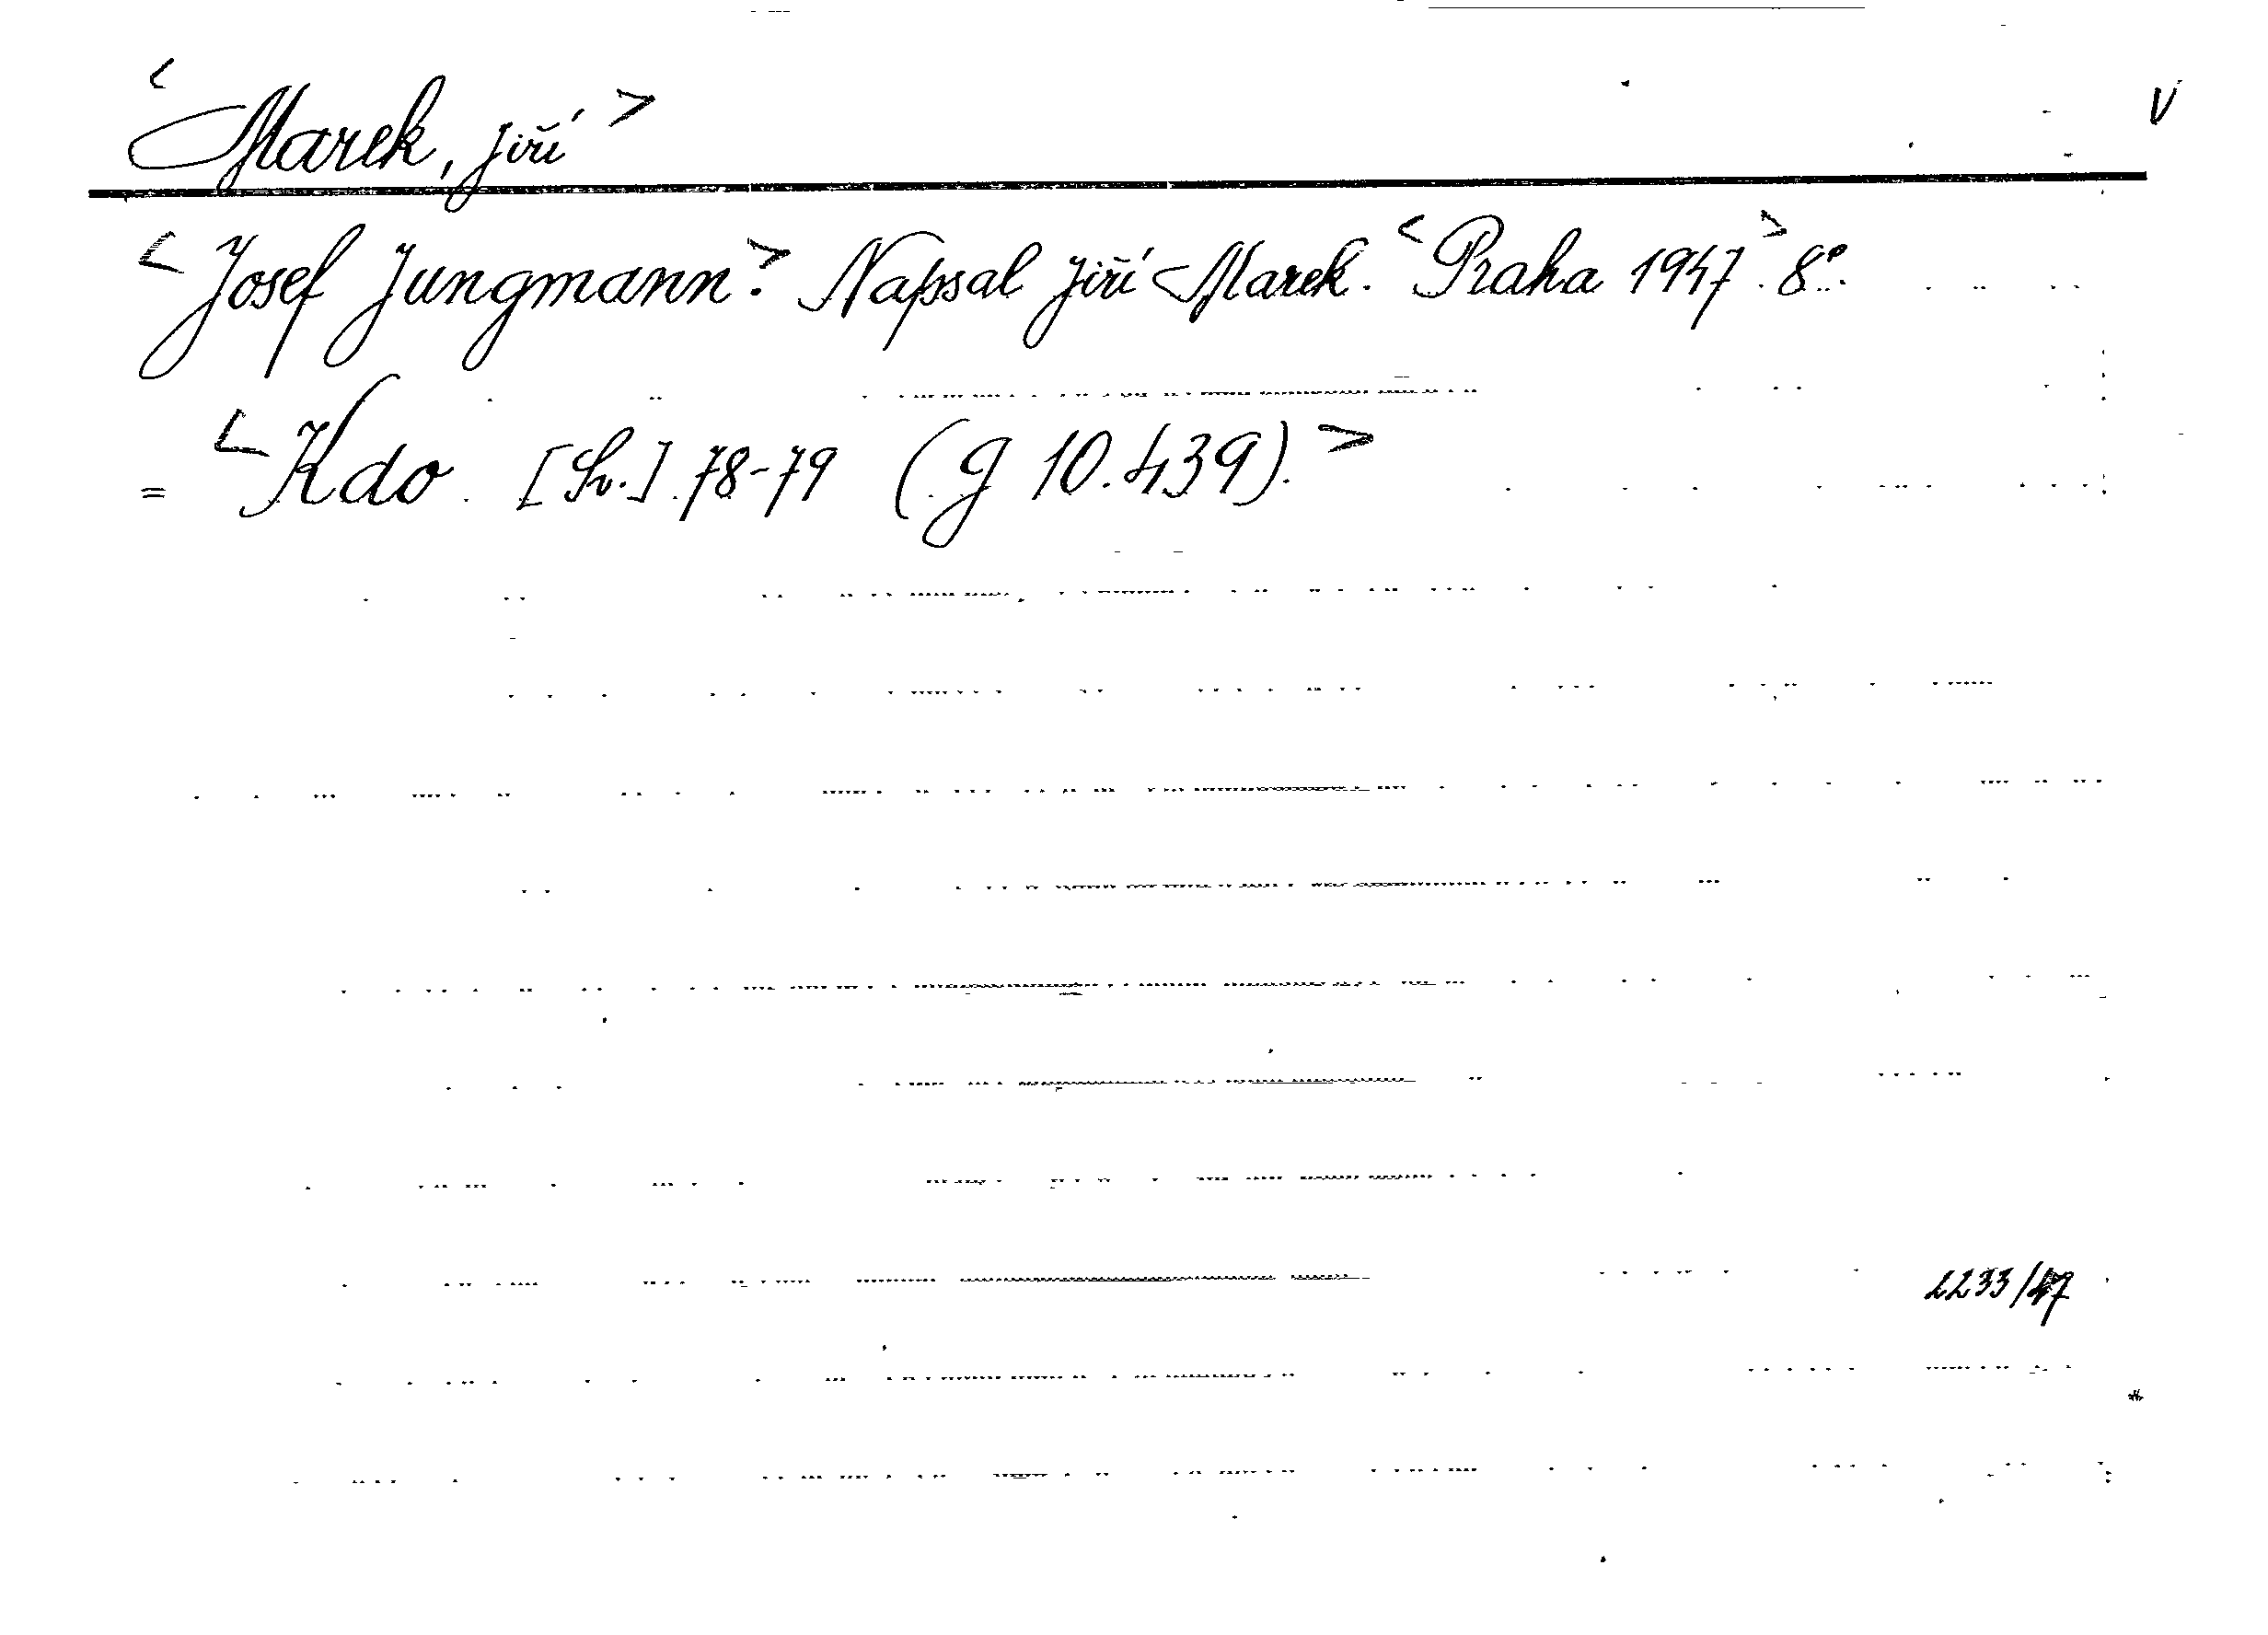 <Marek, Jiří> V
<Josef Jungmann.> Napsal Jiří Marek. <Praha 1947.> 8°.
= <Kdo. [Sv.] 78-79 (g 10.439).>
2233/47